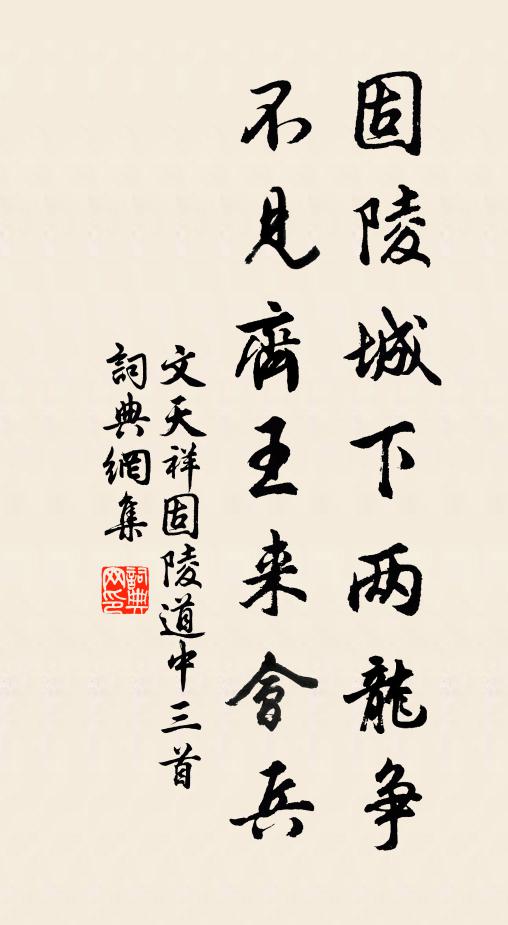 固陵城下两龍争
不見齊王来會兵
文天祥固陵道中三首
詞典網集
詞典網印